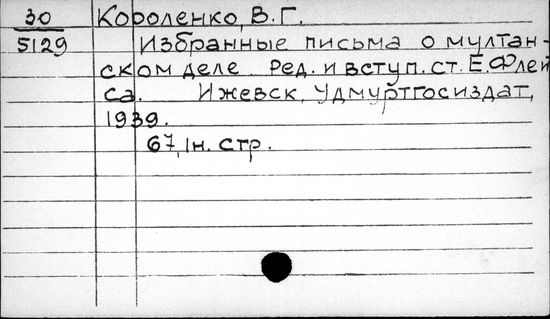 30 Короленко, В.Г.
5129 Избранные письма о мултан-
ском деле. Ред. и вступ. ст. Е. Флей
са. Ижевск, Удмуртгосиздат,
1939.
67, 1н. стр.